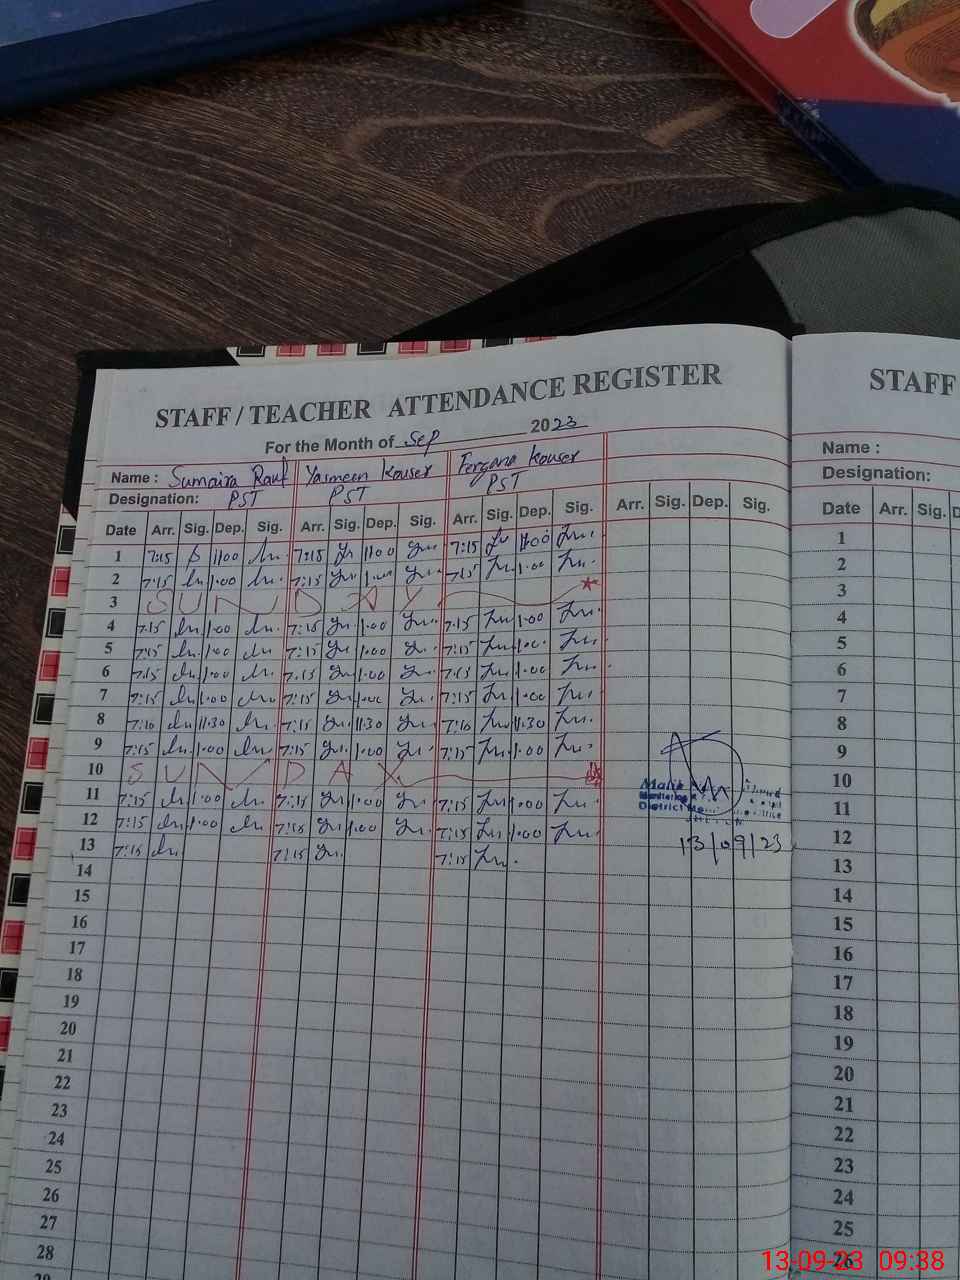 STAFF / TEACHER ATTENDANCE REGISTER
For the Month of Sep 2023
Name : Sumaira Rauf Yasmeen Kouser Fergana Kouser
Designation: PST PST PST
Date Arr. Sig. Dep. Sig. Arr. Sig. Dep. Sig. Arr. Sig. Dep. Sig. Arr. Sig. Dep. Sig.
1 7:15 11:00 7:15 11:00 7:15 11:00
2 7:15 1:00 7:15 1:00 7:15 1:00
3 SUNDAY
4 7:15 1:00 7:15 1:00 7:15 1:00
5 7:15 1:00 7:15 1:00 7:15 1:00
6 7:15 1:00 7:15 1:00 7:15 1:00
7 7:15 1:00 7:15 1:00 7:15 1:00
8 7:10 11:30 7:15 11:30 7:10 11:30
9 7:15 1:00 7:15 1:00 7:15 1:00
10 SUNDAY
11 7:15 1:00 7:15 1:00 7:15 1:00
12 7:15 1:00 7:15 1:00 7:15 1:00
13 7:15 7:15 7:15
14
15
16
17
18
19
20
21
22
23
24
25
26
27
28
Malik
Monitoring
District
13/09/23
STAFF
Name :
Designation:
Date Arr. Sig.
1
2
3
4
5
6
7
8
9
10
11
12
13
14
15
16
17
18
19
20
21
22
23
24
25
26
13-09-23 09:38